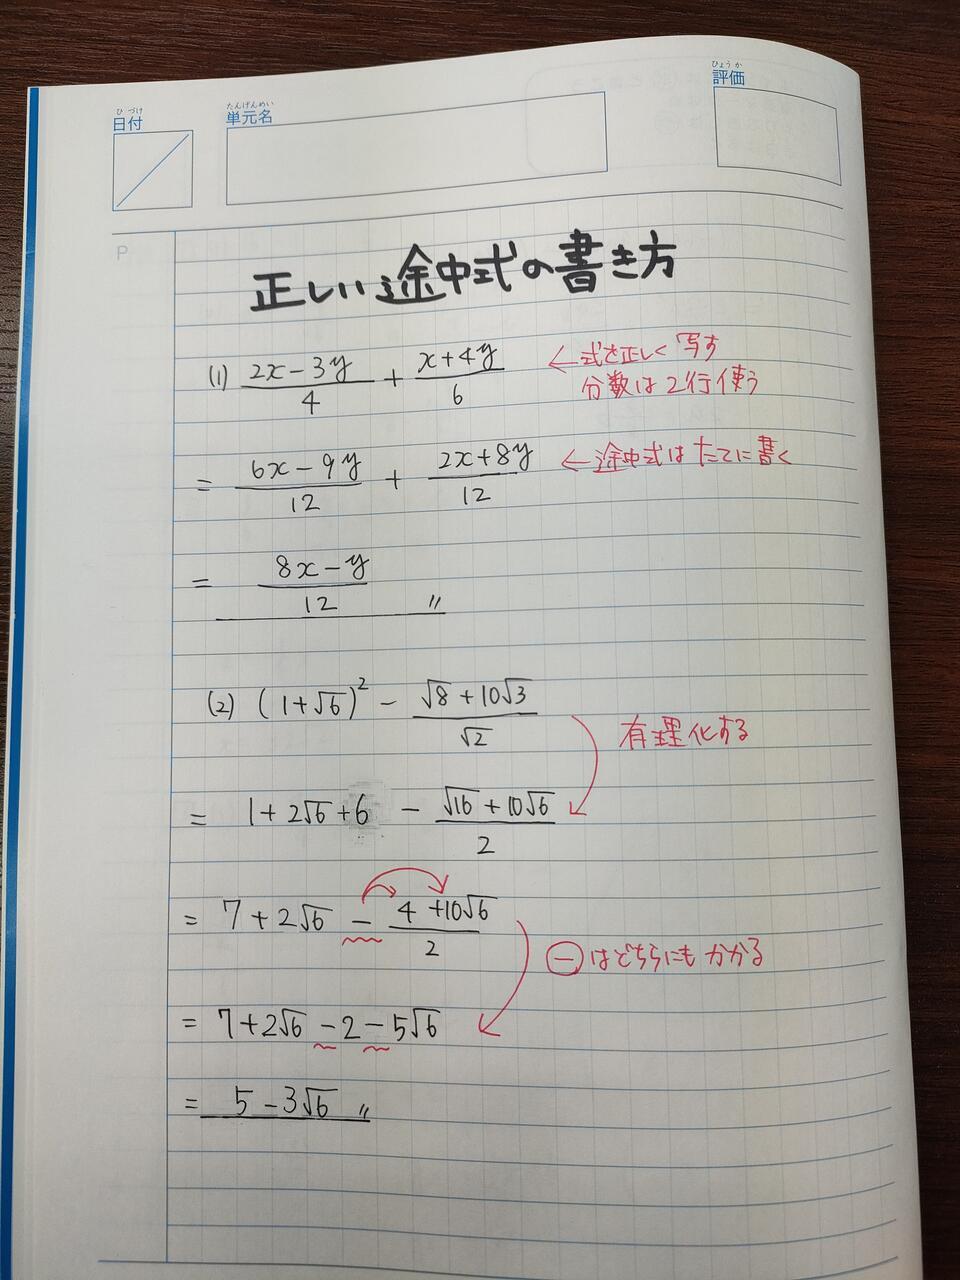 ひづけ
日付
たんげんめい
単元名
ひょうか
評価
P
正しい途中式の書き方
(1) (2x-3y)/4 + (x+4y)/6 ←式を正しく写す
分数は2行使う
= (6x-9y)/12 + (2x+8y)/12 ←途中式はたてに書く
= (8x-y)/12 〃
(2) (1+√6)² - (√8+10√3)/√2
有理化する
= 1+2√6+6 - (√16+10√6)/2
= 7+2√6 - (4+10√6)/2
㊀はどちらにもかかる
= 7+2√6-2-5√6
= 5-3√6 〃